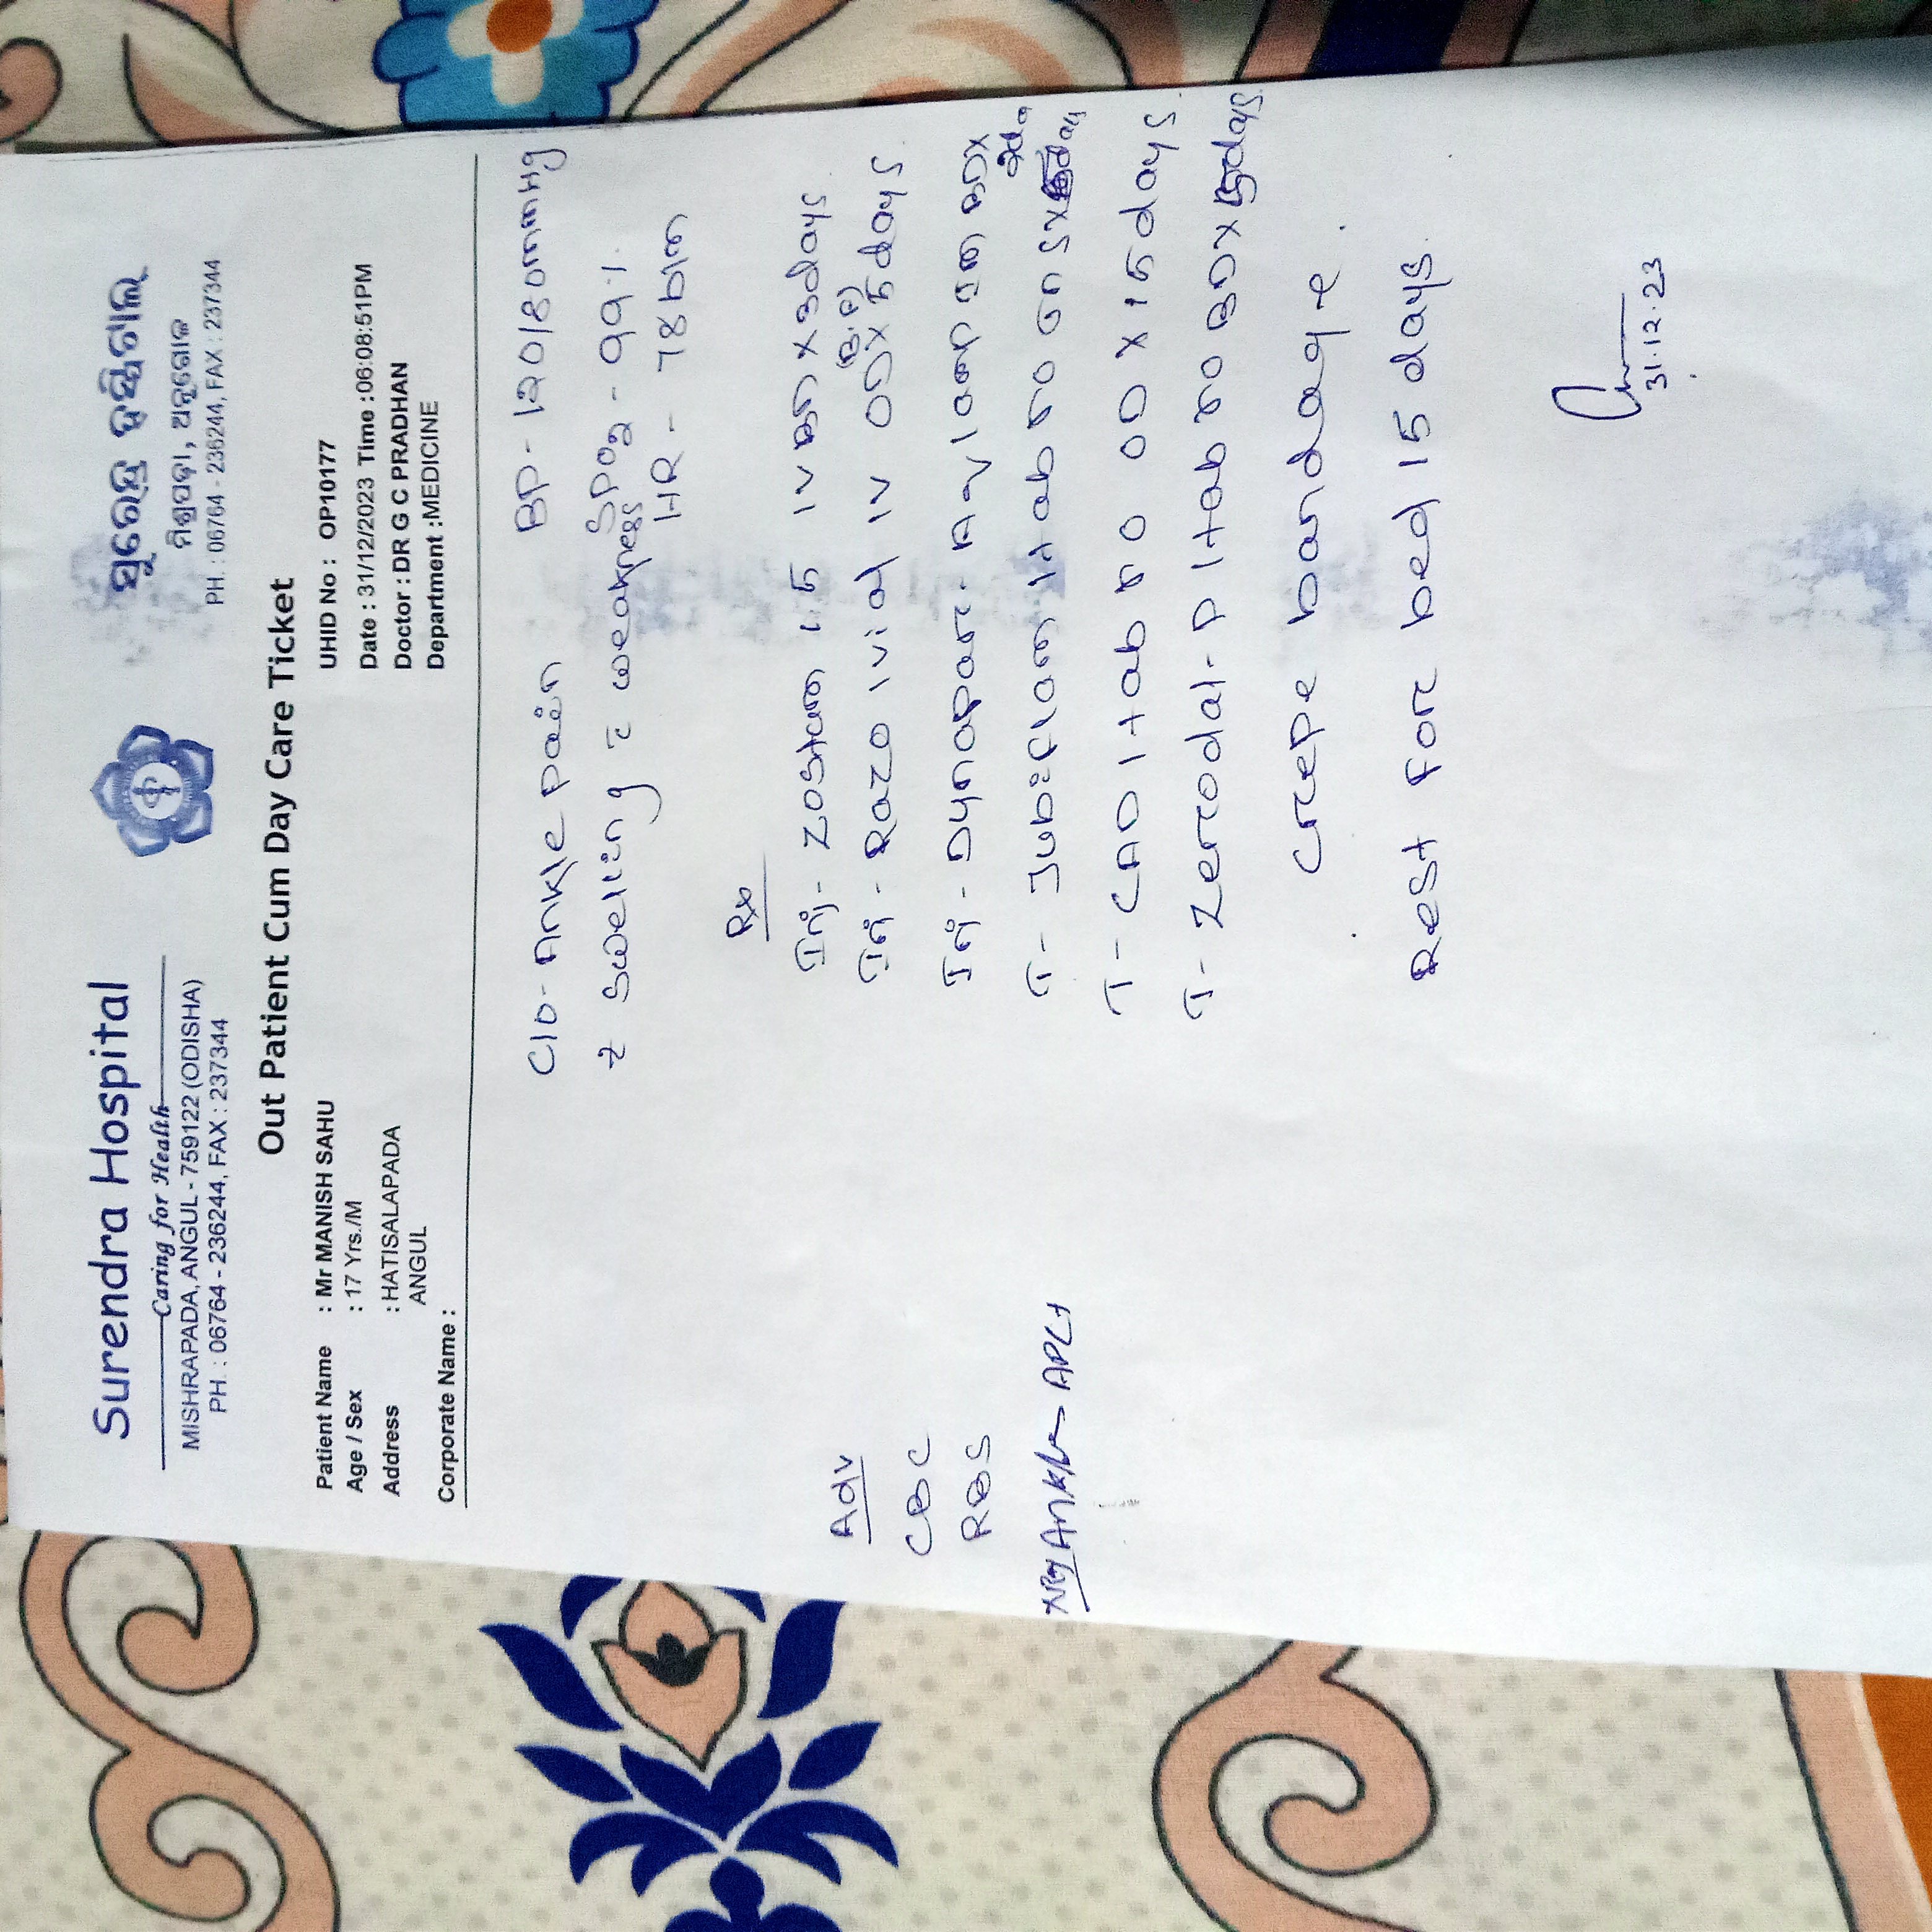 Surendra Hospital
Caring for Health
MISHRAPADA, ANGUL - 759122 (ODISHA)
PH. : 06764 - 236244, FAX : 237344
ସୁରେନ୍ଦ୍ର ହସ୍ପିଟାଲ୍
ମିଶ୍ରପଡ଼ା, ଅନୁଗୋଳ
PH. : 06764 - 236244, FAX : 237344
Out Patient Cum Day Care Ticket
Patient Name : Mr MANISH SAHU
Age / Sex : 17 Yrs./M
Address : HATISALAPADA
ANGUL
Corporate Name :
UHID No : OP10177
Date : 31/12/2023 Time :06:08:51PM
Doctor : DR G C PRADHAN
Department :MEDICINE
C/o- Ankle pain BP-120/80mmHg
swelling c weakness SPO2-99%
HR- 78b/m
Rx
Inj- Zostum 1.5 IV x 3days
Inj- Razo 1vial IV OD x 5days
Inj- Dynapar- AQ 1amp
T- Jubiflam 1tab
T- CAD 1tab OD x 15days
T- Zerodal-P 1tab x 5days
crepe bandage.
Rest for bed 15 days.
31.12.23
Adv
CBC
RBS
Xray Ankle